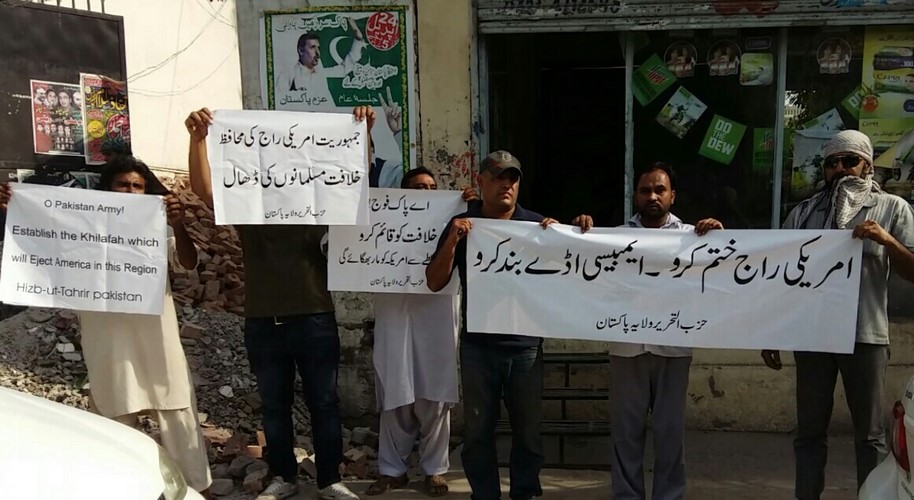 O Pakistan Army!
Establish the Khilafah which
will Eject America in this Region
Hizb-ut-Tahrir pakistan
جمہوریت امریکی راج کی محافظ
خلافت مسلمانوں کی ڈھال
حزب التحریر ولایہ پاکستان
اے پاک فوج!
خلافت کو قائم کرو
خطے سے امریکہ کو مار بھگائے گی
حزب التحریر ولایہ پاکستان
امریکی راج ختم کرو۔ ایمبیسی اڈے بند کرو
حزب التحریر ولایہ پاکستان
24
اپریل
جلسہ عام
عزم پاکستان
DO
THE
DEW